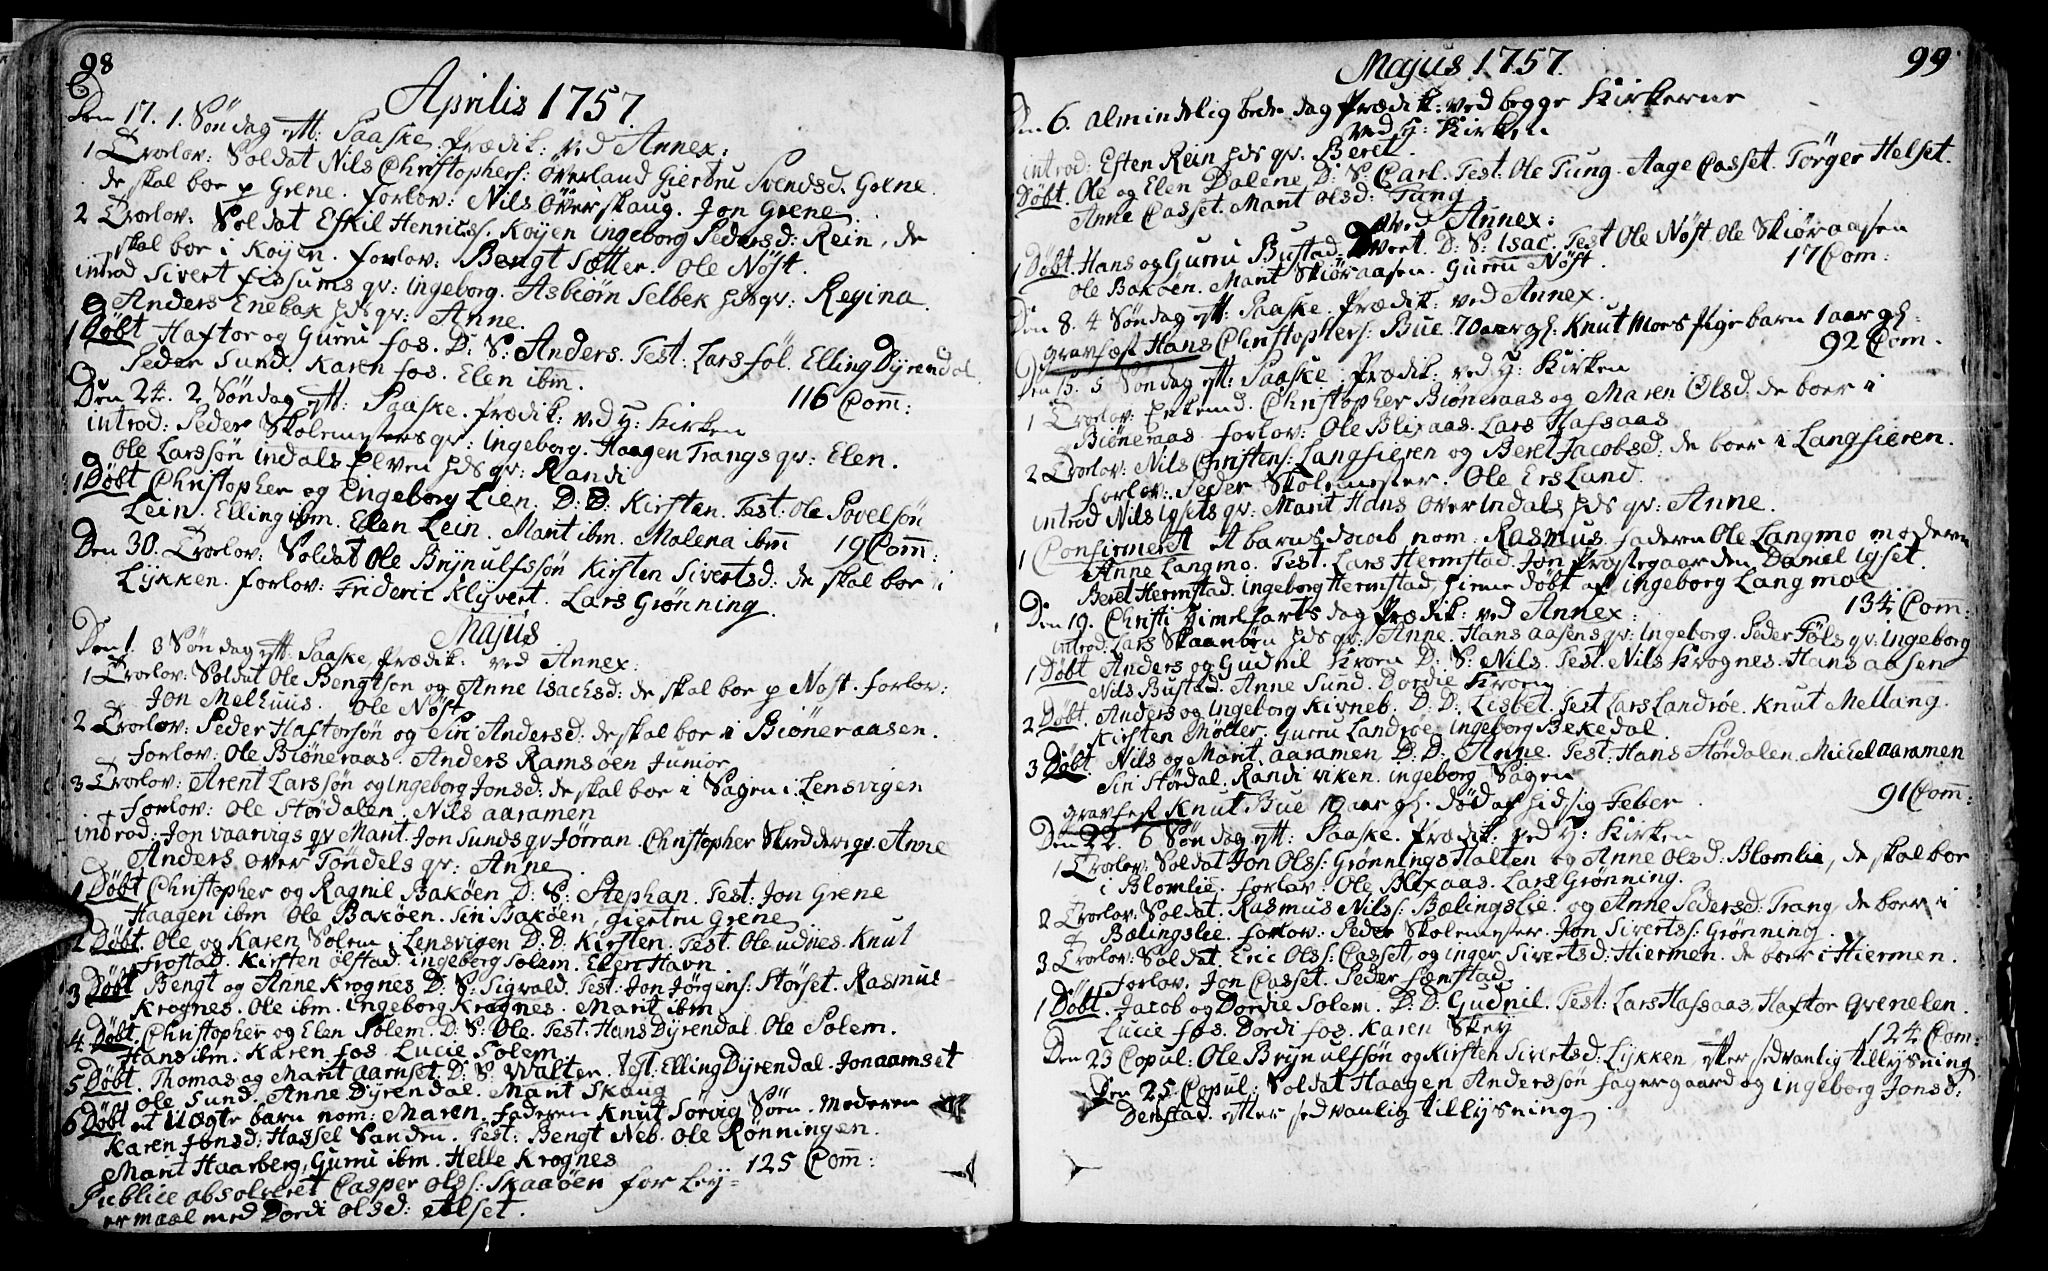 98
Aprilis 1757.
Den 17. 1. Søndag eft: Paaske, Prædik: ved Annex:
1 Trolov: Soldat Nils Christophers: Överland Giertru Svendsd. Grene.
de skal boe p Grene. Forlov: Nils Överskaug. Jon Grene
2 Trolov: Soldat Eskil Henrics: Koÿen Ingeborg Pedersd: Rein, de
skal boe i Koÿen. Forlov: Bengt Sætter. Ole Nøst.
introd Sivert Fissums qv: Ingeborg. Asbiörn Selbek hds qv: Regina
Anders Enebak hds qv: Anne.
1 Døbt Haftor og Gurru Fos. D: S: Anders. Test: Lars Föl. Elling Dÿrendal
Peder Sund. Karen Fos. Elen ibm.
116 Com:
Den 24. 2 Søndag eft: Paaske. Prædik: ved H: Kirken
introd: Peder Skolemesters qv: Ingeborg. Haagen Trangs qv: Elen.
Ole Larssøn Indals Elven hds qv: Randi
1 Døbt Christopher og Engeborg Lien. D: D: Kirsten. Test: Ole Povelsøn
Lein. Elling ibm. Elen Lein. Marit ibm. Malena ibm 19 Com:
Den 30. Trolov: Soldat Ole Brÿnulfssøn Kirsten Sivertsd: de skal boe i
Lÿkken. Forlov: Frideric Klÿvert. Lars Grønning.
Majus
Den 1. 3 Søndag eft: Paaske, Prædik: ved Annex:
1 Trolov: Soldat Ole Bengtsøn og Anne Isachsd: de skal boe p Nøst. Forlov:
Jon Melhuus. Ole Nøst
2 Trolov: Peder Haftorsøn og Siri Andersd: de skal boe i Biöneraasen.
Forlov: Ole Biöneraas. Anders Ramsöen Junior
3 Trolov: Arent Larssøn og Ingeborg Jonsd: de skal boe i Sagen i Lensvigen
Forlov: Ole Stordalen. Nils Aaramen
introd: Jon Vaarvigs qv Marit. Jon Sunds qv Jörran. Christopher Skredders qv. Anne
Anders Over Töndels qv: Anne
1 Døbt Christopher og Ragnil Baköen D: S: Stephan. Test: Jon Grene
Haagen ibm Ole Baköen. Siri Baköen, Giertru Grene
2 Døbt. Ole og Karen Solem i Lensvigen D: D: Kirsten. Test: Ole Udnes. Knut
Frostad. Kirsten Ölstad. Ingeborg Solem. Elen Havn
3 Døbt Bengt og Anne Krognes D: S: Sigvald. Test: Jon Jørgens: Störset. Rasmus
Krognes. Ole ibm. Ingeborg Krognes. Marit ibm
4 Døbt. Christopher og Elen Solem. D: S: Ole. Test: Hans Dÿrendal. Ole Solem.
Hans ibm. Karen Fos. Lucie Solem
5 Døbt. Thomas og Marit Aarnset. D: S: Walter. Test. Elling Dÿrendal. Jon Aamset
Ole Sund. Anne Dÿrendal. Marit Skaug
6 Døbt et uægte barn nom: Maren. Faderen Knut Sörvig Søn. Moderen
Karen Jonsd: Hassel Sanden. Test: Bengt Neb. Ole Rönningen.
Marit Haarberg, Gurru ibm. Helle Krognes 125 Com:
Publice absolveret Casper Ols: Skaaöen for Leÿ=
ermaal med Dordi Olsd: Alset.
Majus 1757.
99
Den 6. almindelig bede dag Prædik: ved begge Kirkerne
Ved H: Kirken
introd: Esten Rein hds qv. Beret.
Døbt. Ole og Elen Dalene D: S: Carl. Test: Ole Tung. Aage Casset. Törger Helset.
Anne Casset. Marit Olsd: Tung
Ved Annex:
1 Døbt. Hans og Gurru Bustad. D: S: Isac. Test Ole Nøst. Ole Skiöraasen
Ole Baköen. Marit Skiöraasen. Gurru Nøst. 17 Com:
Den 8. 4 Søndag eft: Paaske. Prædik: ved Annex.
gravfæst Hans Christophers: Bue. 70 aar gl: Knut Moes Pigebarn 1 aar gl:
92 Com.
Den 15. 5 Søndag eft: Paaske, Prædik: ved H: Kirken
1 Trolov: Enkemd. Christopher Biöneraas og Maren Olsd: de boer i
Biöneraas. Forlov: Ole Blixaas. Lars Hafsaas
2 Trolov: Nils Christens: Langsieren og Beret Jacobsd: de boer i Langsieren.
Forlov: Peder Skolemester. Ole Ersland.
introd Nils Igsets qv: Marit Hans Over Indals hds qv: Anne.
1 Confirmeret et barns daab nom. Rasmus. Faderen Ole Langmo moderen
Anne Langmo. Test. Lars Hermstad. Jon Præstegaarden Daniel Igset.
Beret Hermstad. Ingeborg Hermstad, hieme døbt af Ingeborg Langmoe
134 Com:
Den 19. Christi Himelfarts dag Prædik: ved Annex:
introd: Lars Skaanöen hds qv: Anne. Hans Aasens qv: Ingeborg. Peder Föls qv: Ingeborg
1 Døbt Anders og Gudnil Kroen D: S: Nils. Test: Nils Krognes. Hans Aasen
Nils Bustad. Anne Sund. Dordie Kroen
2 Døbt. Anders og Ingeborg Kirneb. D: D: Lisbet. Test Lars Landröe. Knut Melland.
Kirsten Möller. Gurru Landröe. Ingeborg Bekedal
3 Døbt. Nils og Marit Aaramen D: D: Anne. Test: Hans Stördalen. Michel Aaramen
Siri Stördal. Randi Viken. Ingeborg Sagen
gravfest Knut Bue aar gl. død af hidsig Feber 91 Com:
Den 22. 6 Søndag eft: Paaske. Prædik: ved H: Kirken
1 Trolov: Soldat Jon Ols: Grønnings Halten og Anne Olsd: Blomlie, de skal boe
i Blomlie. Forlov: Ole Blixaas. Lars Grønning.
2 Trolov: Soldat. Rasmus Nils: Bælingslie. og Anne Pedersd: Trang de boer i
Bælingslie. Forlov: Peder Skolemester. Jon Siverts: Grønning.
3. Trolov: Soldat. Eric Ols: Casset og Inger Sivertsd: Hiermen. de boer i Hiermen.
Forlov: Jon Casset. Peder Sænstad
1 Døbt. Jacob og Dordie Solem. D: D: Gudnil. Test: Lars Hafsaas. Haftor Grenelen.
Lucie Fos. Dordi Fos. Karen Skeÿ 124 Com:
Den 23 Copul: Ole Brÿnulfsøn og Kirsten Sivertsd: Lÿkken, efter sedvanlig tillÿsning
Den 25 Copul: Soldat Haagen Anderssøn Fagergaard og Ingeborg Jonsd:
Denstad. efter sedvanlig tillÿsning